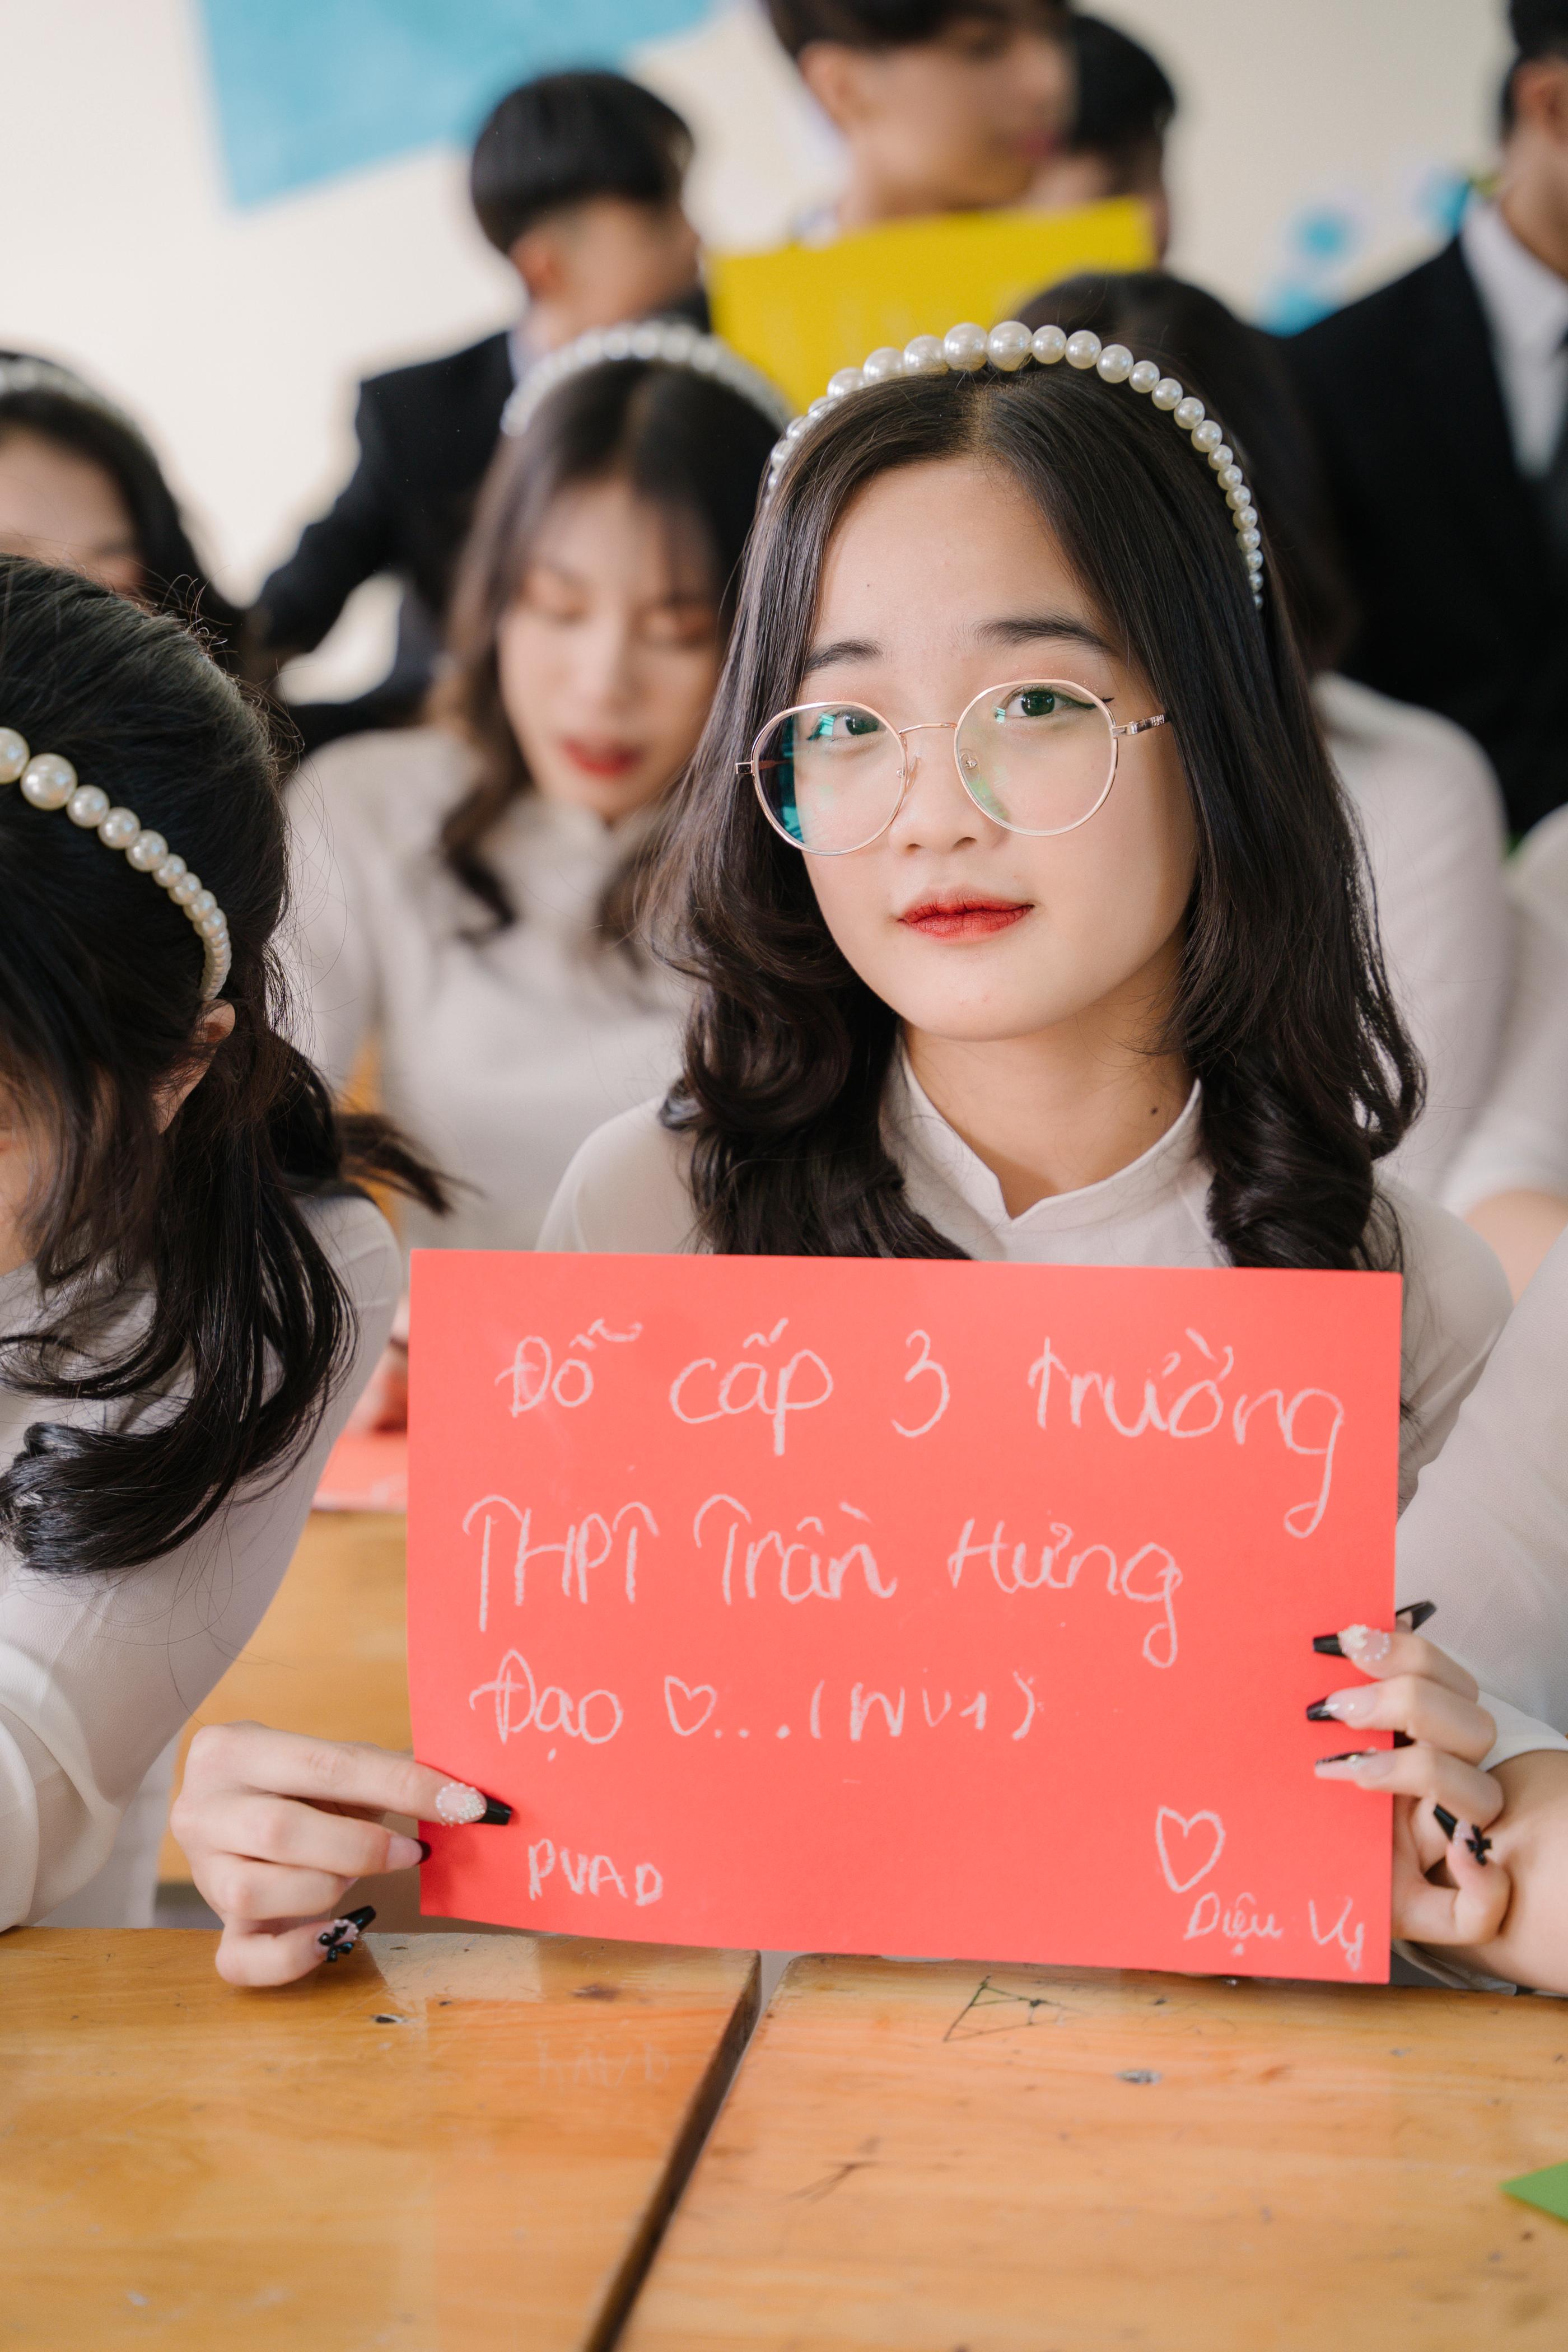 Đỗ cấp 3 trường
THPT Trần Hưng
Đạo ♡...(NV1)
PVAD
♡
Diệu Vy